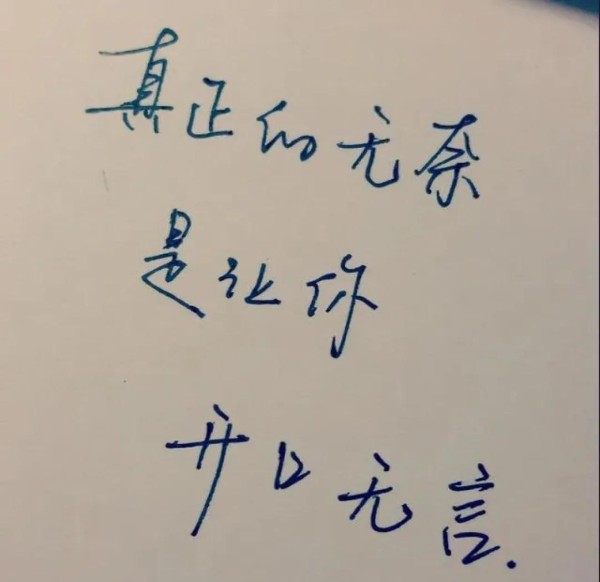 真正的无奈
是让你
开口无言.